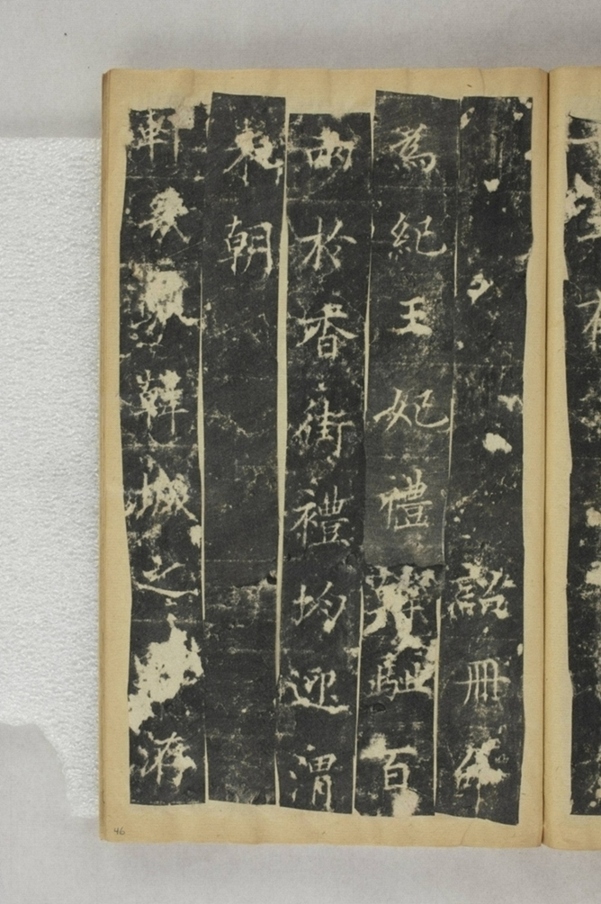 詔冊命
為紀王妃禮馳百
兩於香街禮均迎渭
朝
軒韓城之游
46